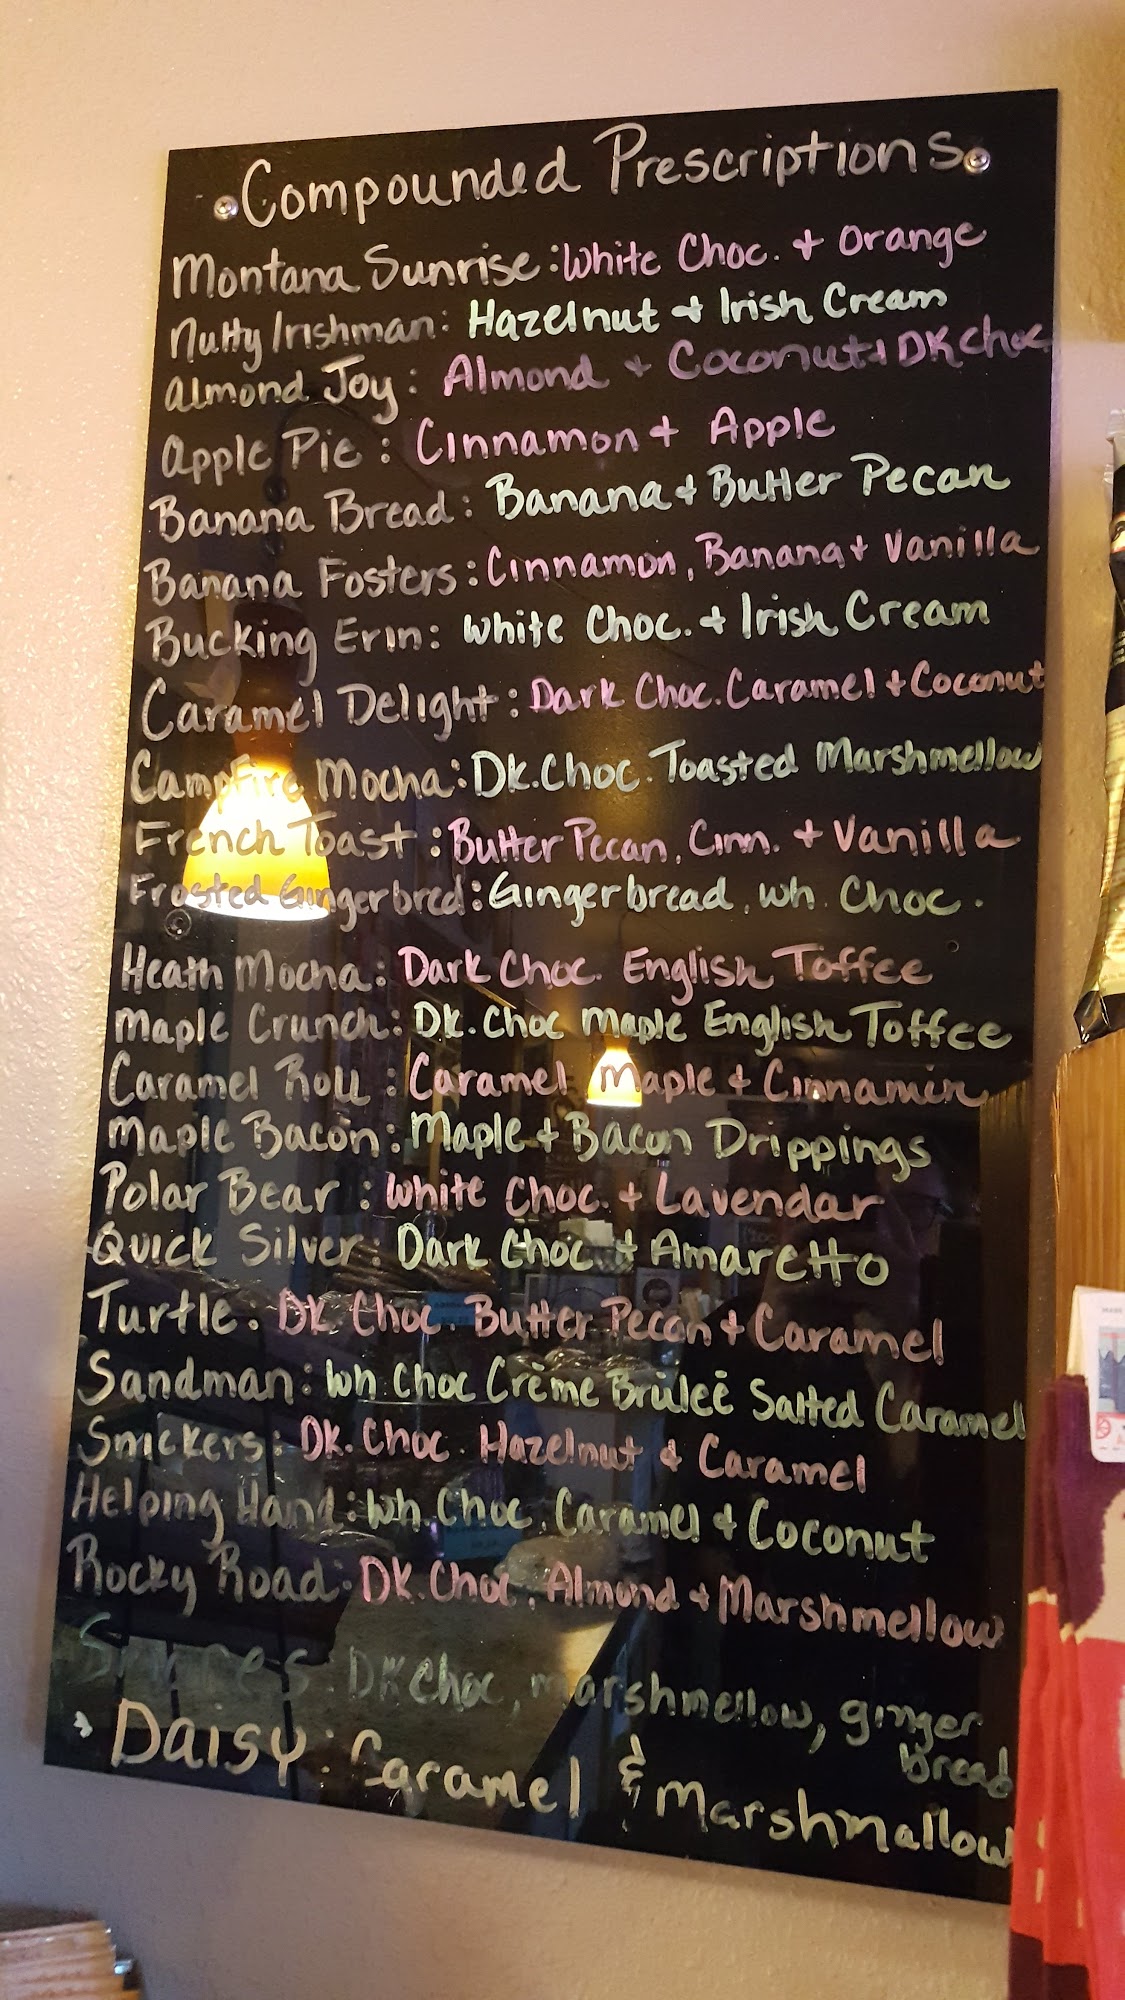 Compounded Prescriptions
Montana Sunrise: White Choc. + Orange
Nutty Irishman: Hazelnut + Irish Cream
Almond Joy: Almond + Coconut + DK choc
Apple Pie: Cinnamon + Apple
Banana Bread: Banana + Butter Pecan
Banana Fosters: Cinnamon, Banana + Vanilla
Bucking Erin: White Choc. + Irish Cream
Caramel Delight: Dark Choc. Caramel + Coconut
Campfire Mocha: Dk. Choc. Toasted Marshmellow
French Toast: Butter Pecan, Cinn. + Vanilla
Frosted Gingerbred: Gingerbread, wh. Choc.
Heath Mocha: Dark Choc. English Toffee
Maple Crunch: Dk. Choc Maple English Toffee
Caramel Roll: Caramel Maple + Cinnamin
Maple Bacon: Maple + Bacon Drippings
Polar Bear: White Choc. + Lavendar
Quick Silver: Dark Choc + Amaretto
Turtle: DK Choc. Butter Pecan + Caramel
Sandman: Wh. Choc Crème Brùleé Salted Caramel
Snickers: DK. Choc. Hazelnut & Caramel
Helping Hand: Wh. Choc. Caramel + Coconut
Rocky Road: DK. Choc, Almond + Marshmellow
DK Choc, marshmellow, ginger
bread
Daisy: Caramel & Marshmallow